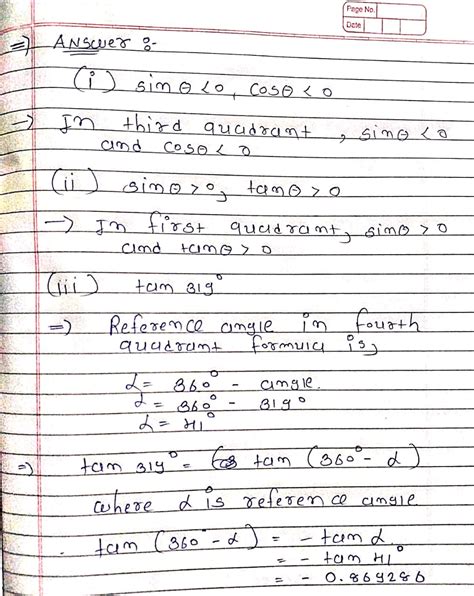 Page No.
Date
⇒ Answer :-
(i) sinθ<0, cosθ<0
→ In third quadrant, sinθ<0
and cosθ<0
(ii) sinθ>0, tanθ>0
→ In first quadrant, sinθ>0
and tanθ>0
(iii) tan 319°
⇒ Reference angle in fourth
quadrant formula is,
α = 360° - angle.
α = 360° - 319°
α = 41°
⇒ tan 319° = tan (360° - α)
where α is reference angle
tan (360° - α) = - tan α
= - tan 41°
= - 0.869286